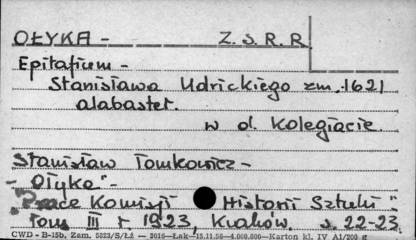 OŁYKA - Z. S. R. R.
Epitafium -
Stanisława Udrickiego zm. 1621
alabaster.
w d. Kolegiacie.
Stanisław Tomkowicz -
- "Ołyka" -
"Prace Komisji Historii Sztuki"
Tom III r. 1923, Kraków. s. 22-23.
CWD - B-15b. Zam. 5823/S/Łż — 3016—Łak—15.11.56—4.000.000—Karton kl. IV A1/200 g